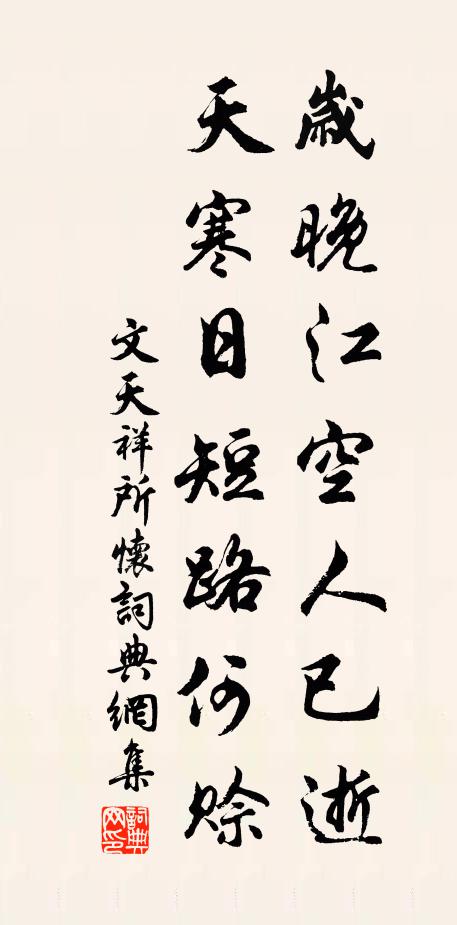 歲晚江空人已逝
天寒日短路何賒
文天祥所懷詞典網集
詞典网印